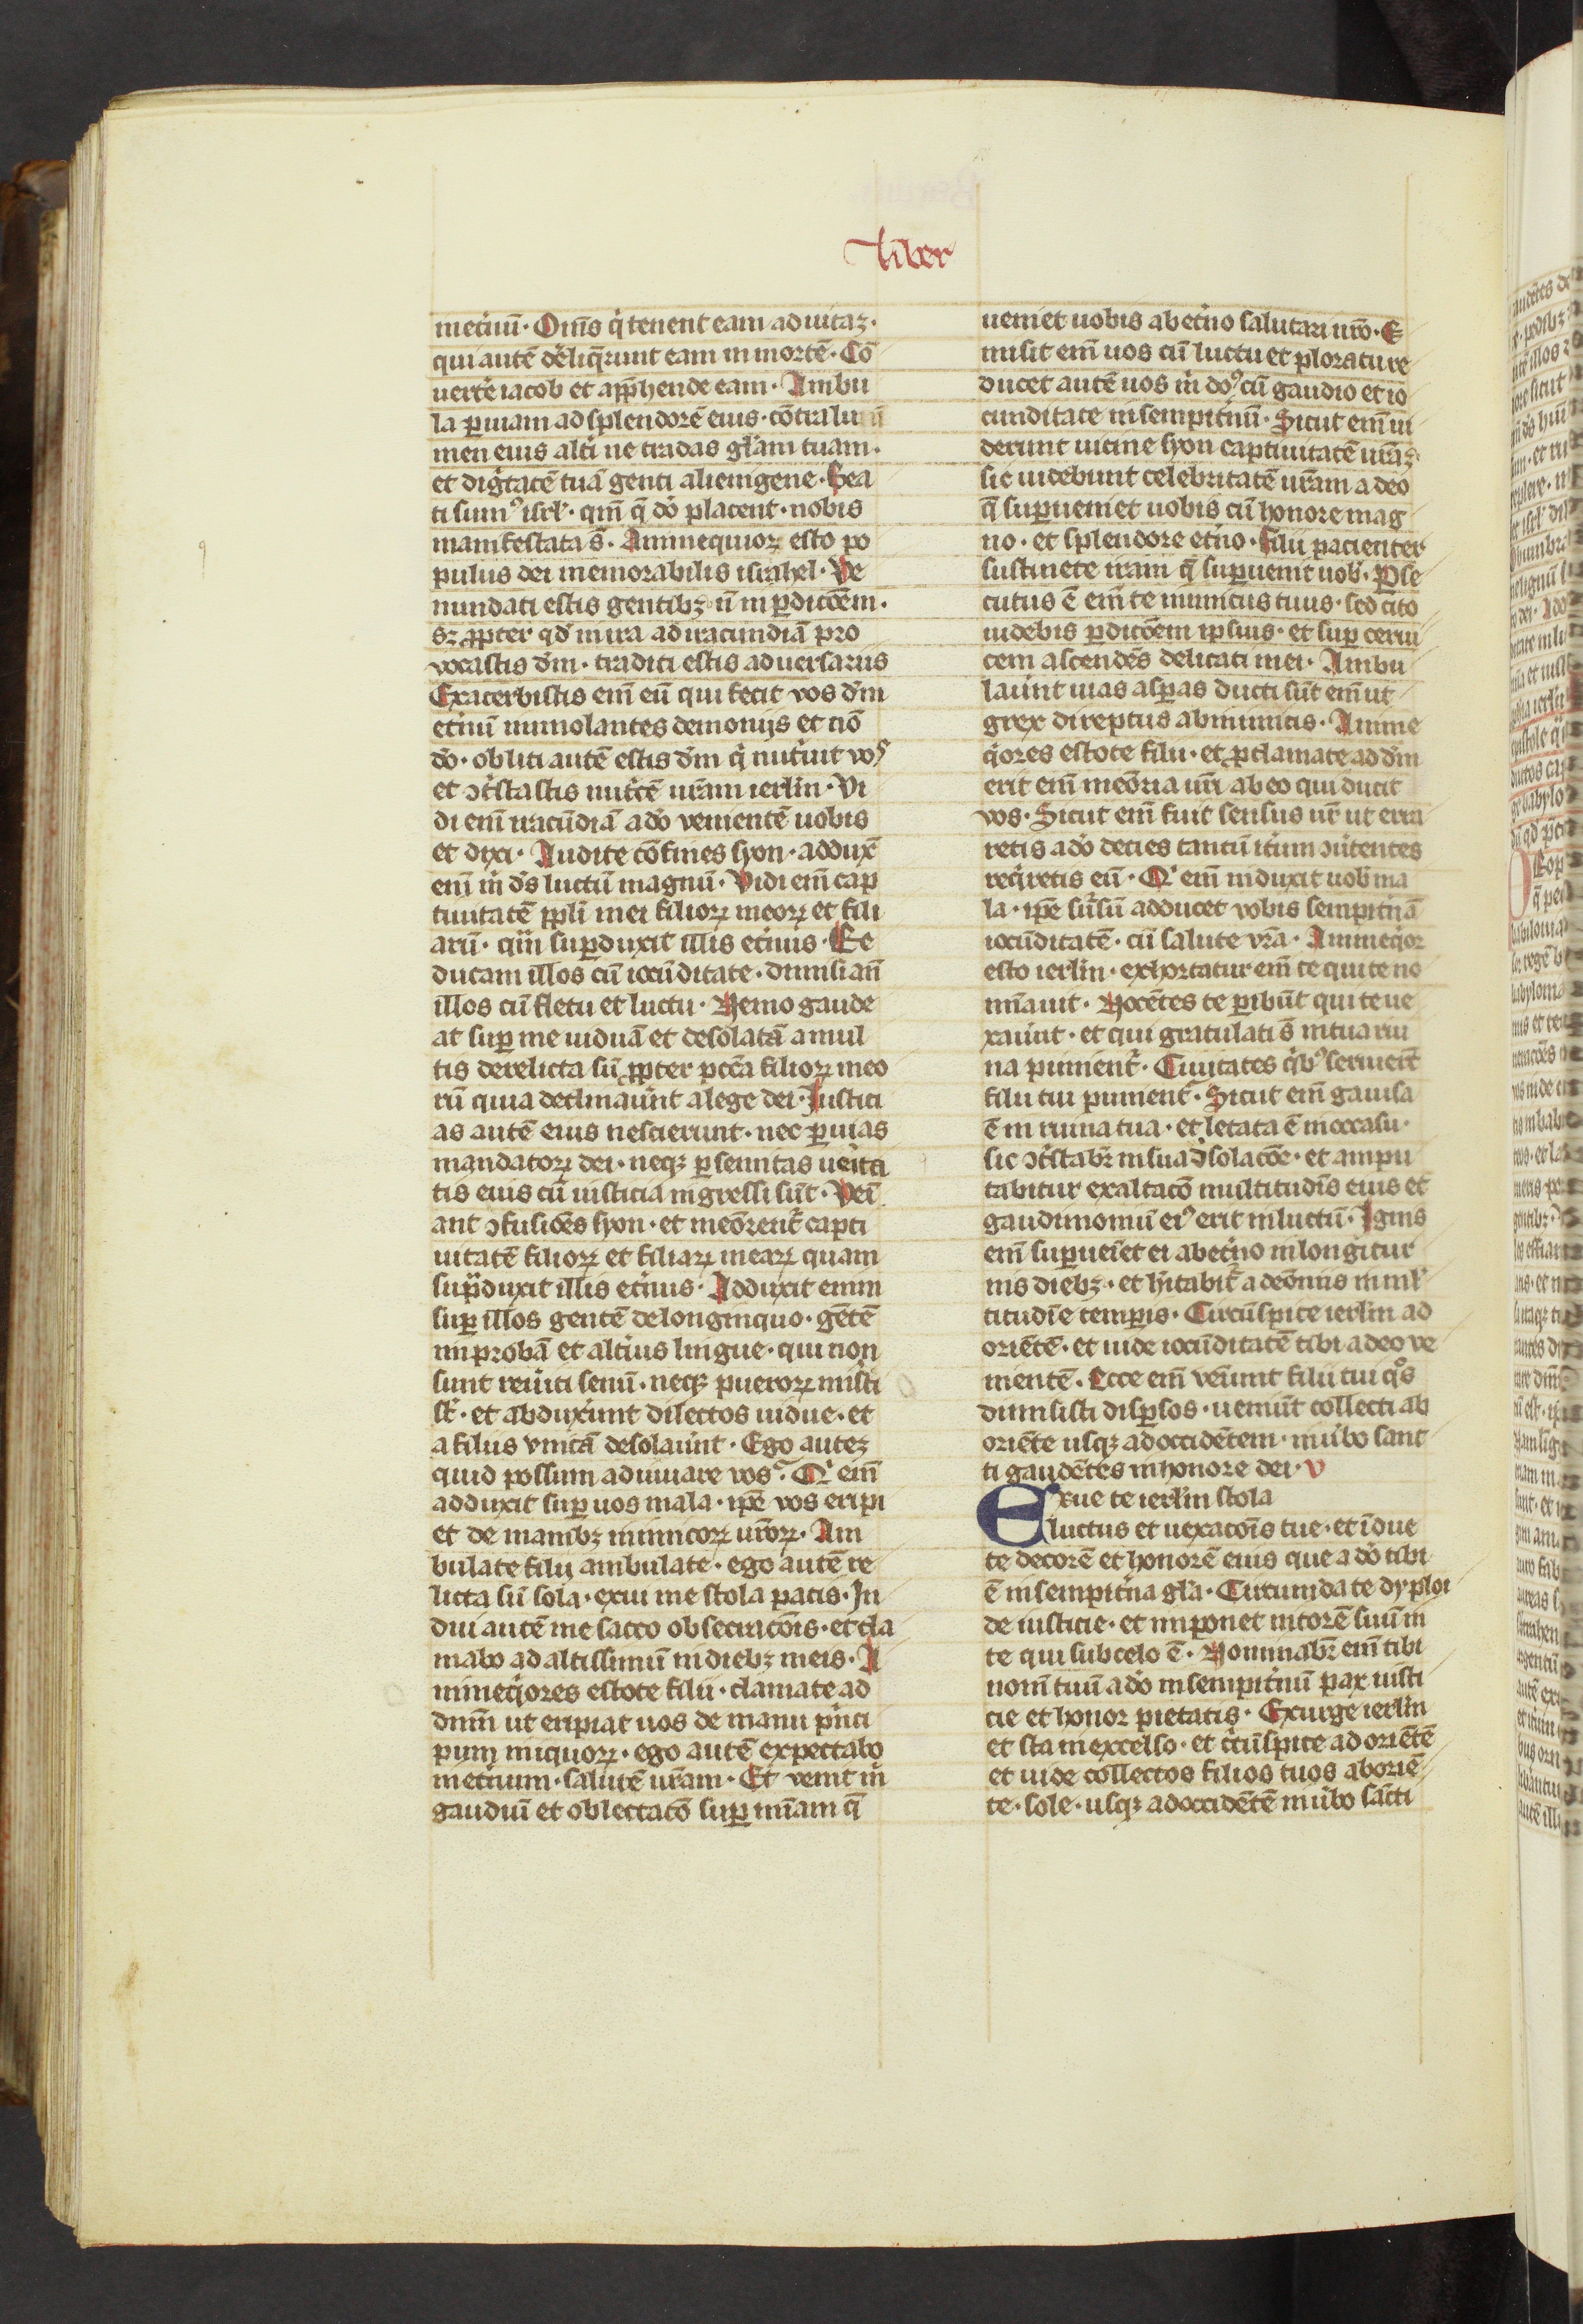 liber
inet'nū· Oms̄ q' tenent eam ad uitaꝫ·
qui autē del̄iqrunt eam in mortē· Cō
uerte iacob et app̄hende eam· Ambu
la p uiam ad splendorē eius· cōtra lu
men eius alt'i ne tradas gl'am tuam·
et dig'tatē tuā genti alienigene· Bea
ti sumꝰ isrl'· qm̄ q̄ do' placent· nobis
manifestata s̄· Animequior esto po
pulus dei memorabilis israhel· Ve
nundati estis gentibꝫ n̄ in p̱ditōem·
sꝫ p̱pter qd' in ira ad iracundiā pro
uocastis dm̄· traditi estis aduersariis
Exacerbastis em̄ eū qui fecit vos dm̄
et'nū immolantes demoniis et nō
do'· obliti autē estis dm̄ q' nut'uit vos
et ꝯt'stastis nut'cē vr̄am ierl'm· Vi
di em̄ iracūdiā a do' venientē uobis
et dixi· Audite cōfines syon· addux̄
em̄ m' ds̄ luctū magnū· Vidi em̄ cap
tiuitatē ppl'i mei filioꝝ meoꝝ et fili
arū· qm̄ suꝑduxit illis et'nus· Ee
ducam illos cū iocūditate· dimisi aū
illos cū fletu et luctu· Nemo gaude
at suꝑ me uiduā et desolatā a mul
tis derelicta sū ꝓpter pccā filioꝝ meo
rū quia declinau'nt a lege dei· Iustici
as autē eius nescierunt· nec ꝑ uias
mandatoꝝ dei· neqꝫ ꝑ semitas ue'ita
tis eius cū iusticia ingressi sūt· Veī
ant ꝯfusiōes syon· et meōrent' capti
uitatē filioꝝ et filiaꝝ meaꝝ quam
suꝑduxit illis et'nus· Adduxit enim
suꝑ illos gentē de longinquo· gētē
improbā et alt'ius lingue· qui non
sunt reu'iti senū· neqꝫ pueroꝝ mis'ti
st'· et abdux'unt dilectos uidue· et
a filiis vnicā desolau'nt· Ego auteꝫ
quid possum adiuuare vos· Q' em̄
adduxit suꝑ uos mala· ip̄e vos eripi
et de manibꝫ inimicoꝝ ur̄oꝝ· Am
bulate filij ambulate· ego autē re
licta sū sola· exui me stola pacis· In
dui autē me sacco obsecracōis· et cla
mabo ad altissimū in diebꝫ meis· A
nimeq'ores estote filii· clamate ad
dnm̄ ut eripiat uos de manu p'nci
pum iniquoꝝ· ego autē expectabo
inet'num· salutē ur̄am· Et venit m'
gaudiū et oblectacō suꝑ mīam q̄
ueniet uobis ab et'no salutari ur̄o· E
misit em̄ uos cū luctu et ploratu re
ducet autē uos m' doꝰ cū gaudio et io
cunditate in sempit'nū· Sicut em̄ ui
derunt uicine syon captiuitatē ur̄aꝫ
sic uidebunt celebritatē ur̄am a deo
q̄ suꝑueniet uobis cū honore mag
no· et splendore et'no· Filii pacienter
sustinete iram q̄ suꝑuenit uob'· Pse
cutus ē em̄ te inimicus tuus· sed cito
uidebis ꝑditōem ipsius· et suꝑ cerui
cem ascendēs delicati mei· Ambu
lau'nt uias aspas ducti sūt em̄ ut
grex direptus ab inimicis· Anime
q'ores estote filii· et ꝓclamate ad dm̄
erit em̄ meōria ur̄i ab eo qui ducit
vos· Sicut em̄ fuit sensus ur̄ ut erra
retis a do' decies tantū it'um ꝯu'tentes
req'retis eū· Q' em̄ induxit uob' ma
la· ip̄e su'sū adducet vobis sempit'nā
iocūditatē· cū salute vr̄a· Animeq'or
esto ierl'm· exhortatur em̄ te qui te no
mīauit· Nocētes te ꝑibūt qui te ue
xau'nt· et qui gratulati s̄ in tua rui
na punient'· Ciuitates q'bꝰ seruiert̄
filii tui punient'· Sicut em̄ gauisa
ē in ruina tua· et letata ē in occasu·
sic ꝯt'stabr̄ in sua dsolacōe· et ampu
tabitur exaltacō multitudīs eius et
gaudimoniū eiꝰ erit in luctū· Ignis
em̄ suꝑueīet ei ab et'no in longitur
nis diebꝫ· et hītabit' a deōniis in mul'
titudīe temꝑis· Circūspice ierl'm ad
oriētē· et uide iocūditatē tibi a deo ve
nientē· Ecce em̄ ven'unt filii tui q°s
dimisisti disꝑsos· ueniūt collecti ab
oriēte usqꝫ ad occidētem· in ũbo sanc
ti gaudētes in honore dei· v
Exue te ierl'm stola
luctus et uexacōis tue· et īdue
te decorē et honorē eius que a do' tibi
ē in sempit'na gl'a· Circumda te dyploi
de iusticie· et imponet mitrē suū in
te qui sub celo ē· Nominabr̄ em̄ tibi
nom̄ tuū a do' in sempit'nū pax iusti
cie et honor pietatis· Exurge ierl'm
et sta in excelso· et c'cūspice ad oriētē
et uide collectos filios tuos ab oriē
te· sole· usqꝫ ad occidētē in ũbo sācti